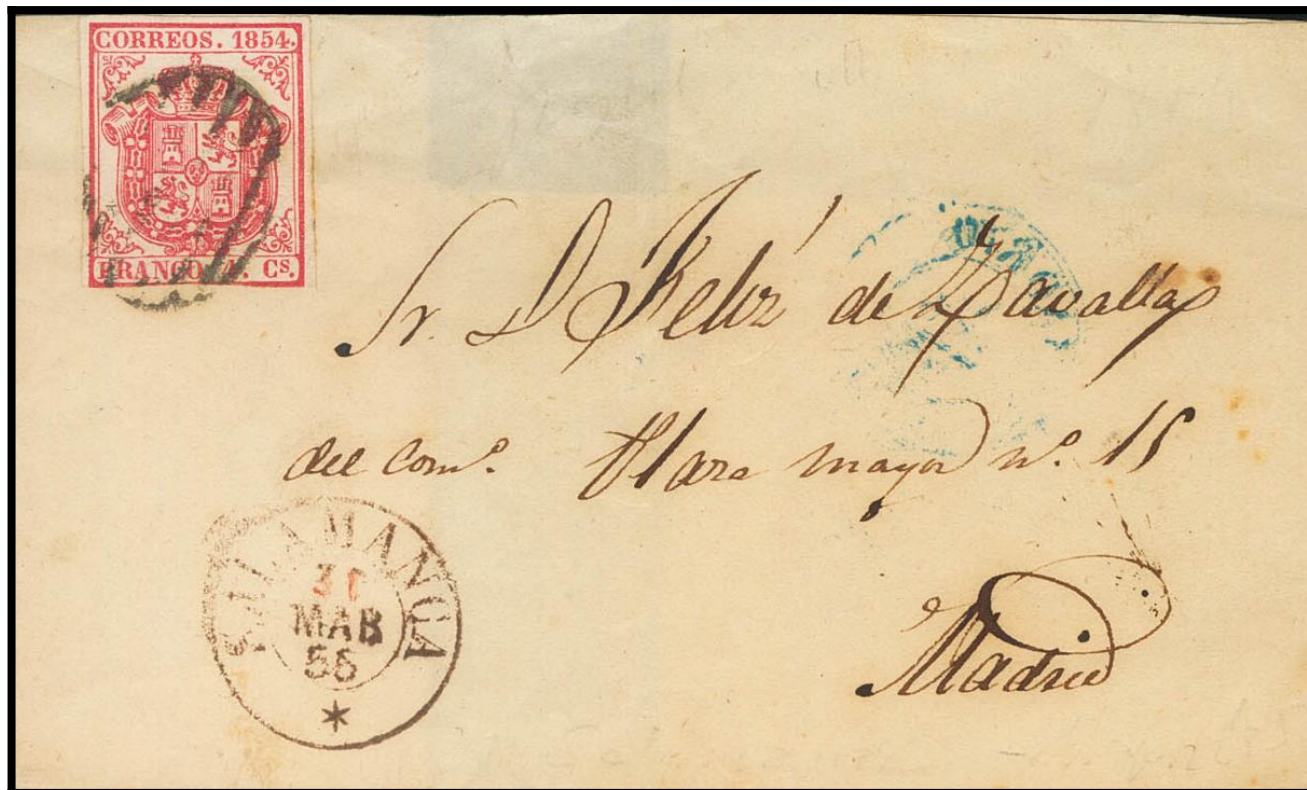 CORREOS. 1854.
FRANCO. Cs.
Sr. D Feliz de Zavalla
del comº. Plaza mayor nº. 15
Madrid
SALAMANCA
31
MAR
55